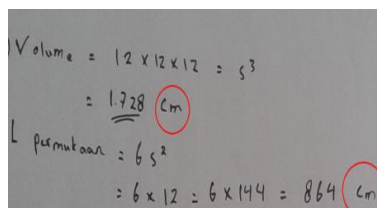 ) Volume = 12 x 12 x 12 = s³
= 1.728 cm
L permukaan = 6 s²
= 6 x 12 = 6 x 144 = 864 cm